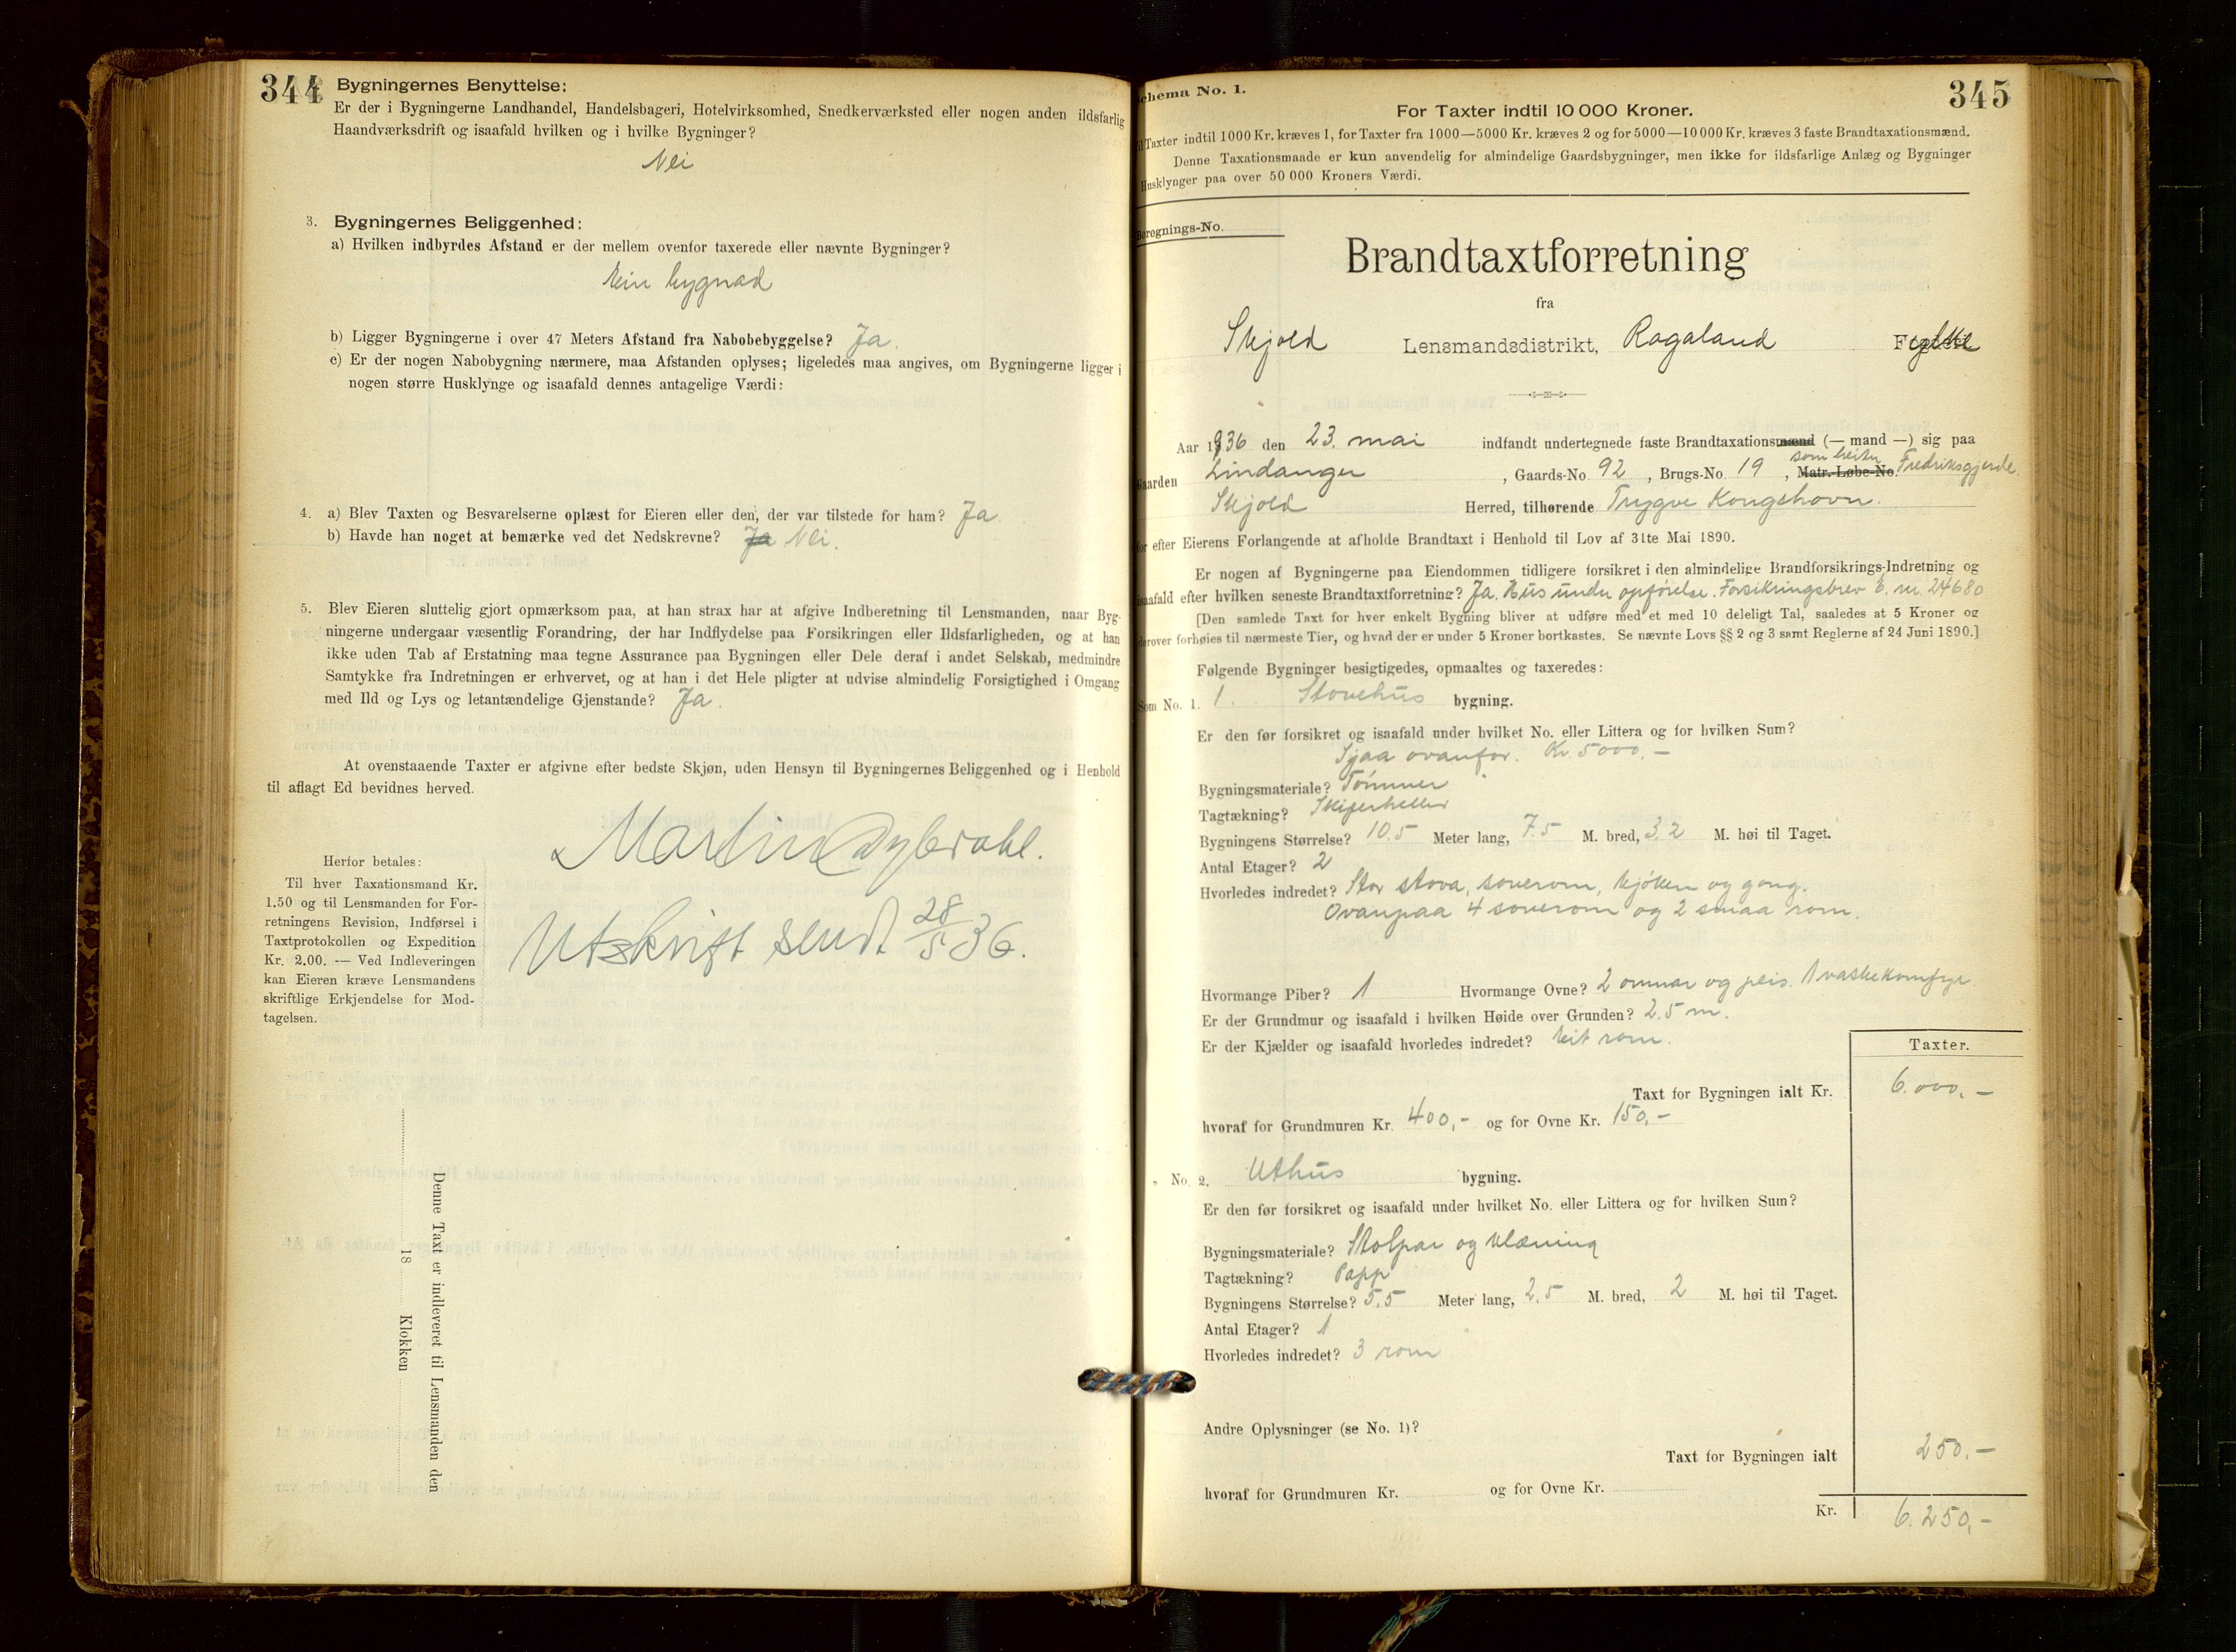 344
Bygningernes Benyttelse:
Er der i Bygningerne Landhandel, Handelsbageri, Hotelvirksomhed, Snedkerværksted eller nogen anden ildsfarlig
Haandværksdrift og isaafald hvilken og i hvilke Bygninger?
Nei
3. Bygningernes Beliggenhed:
a) Hvilken indbyrdes Afstand er der mellem ovenfor taxerede eller nævnte Bygninger?
Ein bygnad
b) Ligger Bygningerne i over 47 Meters Afstand fra Nabobebyggelse? Ja.
c) Er der nogen Nabobygning nærmere, maa Afstanden oplyses; ligeledes maa angives, om Bygningerne ligger i
nogen større Husklynge og isaafald dennes antagelige Værdi:
4. a) Blev Taxten og Besvarelserne oplæst for Eieren eller den, der var tilstede for ham? Ja.
b) Havde han noget at bemærke ved det Nedskrevne? Ja Nei.
5. Blev Eieren sluttelig gjort opmærksom paa, at han strax har at afgive Indberetning til Lensmanden, naar Byg-
ningerne undergaar væsentlig Forandring, der har Indflydelse paa Forsikringen eller Ildsfarligheden, og at han
ikke uden Tab af Erstatning maa tegne Assurance paa Bygningen eller Dele deraf i andet Selskab, medmindre
Samtykke fra Indretningen er erhvervet, og at han i det Hele pligter at udvise almindelig Forsigtighed i Omgang
med Ild og Lys og letantændelige Gjenstande? Ja.
At ovenstaaende Taxter er afgivne efter bedste Skjøn, uden Hensyn til Bygningernes Beliggenhed og i Henhold
til aflagt Ed bevidnes herved.
Martin Dybdahl.
Utskrift sendt 28/5 36.
Herfor betales:
Til hver Taxationsmand Kr.
1.50 og til Lensmanden for For-
retningens Revision, Indførsel i
Taxtprotokollen og Expedition
Kr. 2.00. — Ved Indleveringen
kan Eieren kræve Lensmandens
skriftlige Erkjendelse for Mod-
tagelsen.
Denne Taxt er indleveret til Lensmanden den
18 Klokken
345
Schema No. 1.
For Taxter indtil 10 000 Kroner.
Til Taxter indtil 1000 Kr. kræves 1, for Taxter fra 1000—5000 Kr. kræves 2 og for 5000—10 000 Kr. kræves 3 faste Brandtaxationsmænd.
Denne Taxationsmaade er kun anvendelig for almindelige Gaardsbygninger, men ikke for ildsfarlige Anlæg og Bygninger
Husklynger paa over 50 000 Kroners Værdi.
Beregnings-No.
Brandtaxtforretning
fra
Skjold Lensmandsdistrikt, Rogaland Fylke
Aar 1936 den 23. mai indfandt undertegnede faste Brandtaxationsmænd (— mand —) sig paa
Gaarden Lindanger, Gaards-No. 92, Brugs-No. 19, Matr.-Løbe-No. som heiter Fredriksgjerde.
Skjold Herred, tilhørende Trygve Kongshavn.
for efter Eierens Forlangende at afholde Brandtaxt i Henhold til Lov af 31te Mai 1890.
Er nogen af Bygningerne paa Eiendommen tidligere forsikret i den almindelige Brandforsikrings-Indretning og
isaafald efter hvilken seneste Brandtaxtforretning? Ja. Hus under opførelse. Forsikringsbrev E. nr. 24680
[Den samlede Taxt for hver enkelt Bygning bliver at udføre med et med 10 deleligt Tal, saaledes at 5 Kroner og
derover forhøies til nærmeste Tier, og hvad der er under 5 Kroner bortkastes. Se nævnte Lovs §§ 2 og 3 samt Reglerne af 24 Juni 1890.]
Følgende Bygninger besigtigedes, opmaaltes og taxeredes:
Som No. 1. 1. Stovehus bygning.
Er den før forsikret og isaafald under hvilket No. eller Littera og for hvilken Sum?
Sjaa ovanfor. Kr. 5000,-
Bygningsmateriale? Tømmer
Tagtækning? Skiferheller
Bygningens Størrelse? 10.5 Meter lang, 7.5 M. bred, 3,2 M. høi til Taget.
Antal Etager? 2
Hvorledes indredet? Stor stova, soverom, kjøken og gong.
Ovanpaa 4 soverom og 2 smaa rom.
Hvormange Piber? 1 Hvormange Ovne? 2 omnar og peis. 1 vaskekomfyr
Er der Grundmur og isaafald i hvilken Høide over Grunden? 2.5 m.
Er der Kjælder og isaafald hvorledes indredet? Eit rom.
Taxter.
Taxt for Bygningen ialt Kr. 6.000.-
hvoraf for Grundmuren Kr. 400,- og for Ovne Kr. 150,-
„ No. 2. Uthus bygning.
Er den før forsikret og isaafald under hvilket No. eller Littera og for hvilken Sum?
Bygningsmateriale? Stolpar og klæning
Tagtækning? Papp
Bygningens Størrelse? 5,5 Meter lang, 2,5 M. bred, 2 M. høi til Taget.
Antal Etager? 1
Hvorledes indredet? 3 rom
Andre Oplysninger (se No. 1)?
Taxt for Bygningen ialt 250.-
hvoraf for Grundmuren Kr. og for Ovne Kr.
Kr. 6.250,-